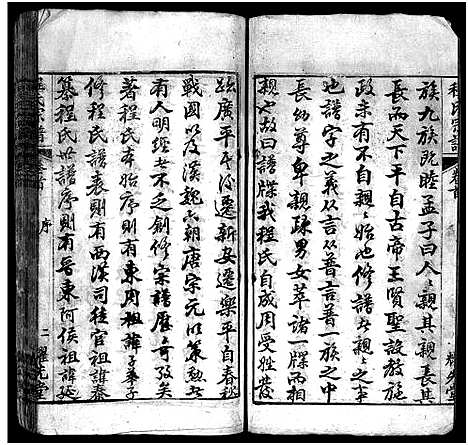 程氏宗譜
卷首
族九族既睦孟子曰人人親其親長其
長而天下平自古帝王賢聖設教施
政未有不自親親始也修譜者親親
也譜字之義从言从普言普一族之中
長幼尊卑親疎男女萃諸一牒而相
親也故曰譜牒我程氏自成周受姓發
跡廣平平後遷新安遷樂平自春秋
戰國以及漢魏六朝唐宋元以策勲者
有人明經者不乏創修宗譜歷歷可攷矣
著程氏本始序則有東周祖諱子華子
修程氏譜表則有西漢司徒官祖諱泰
纂程氏世譜序則有晉東阿侯祖諱延
序
二